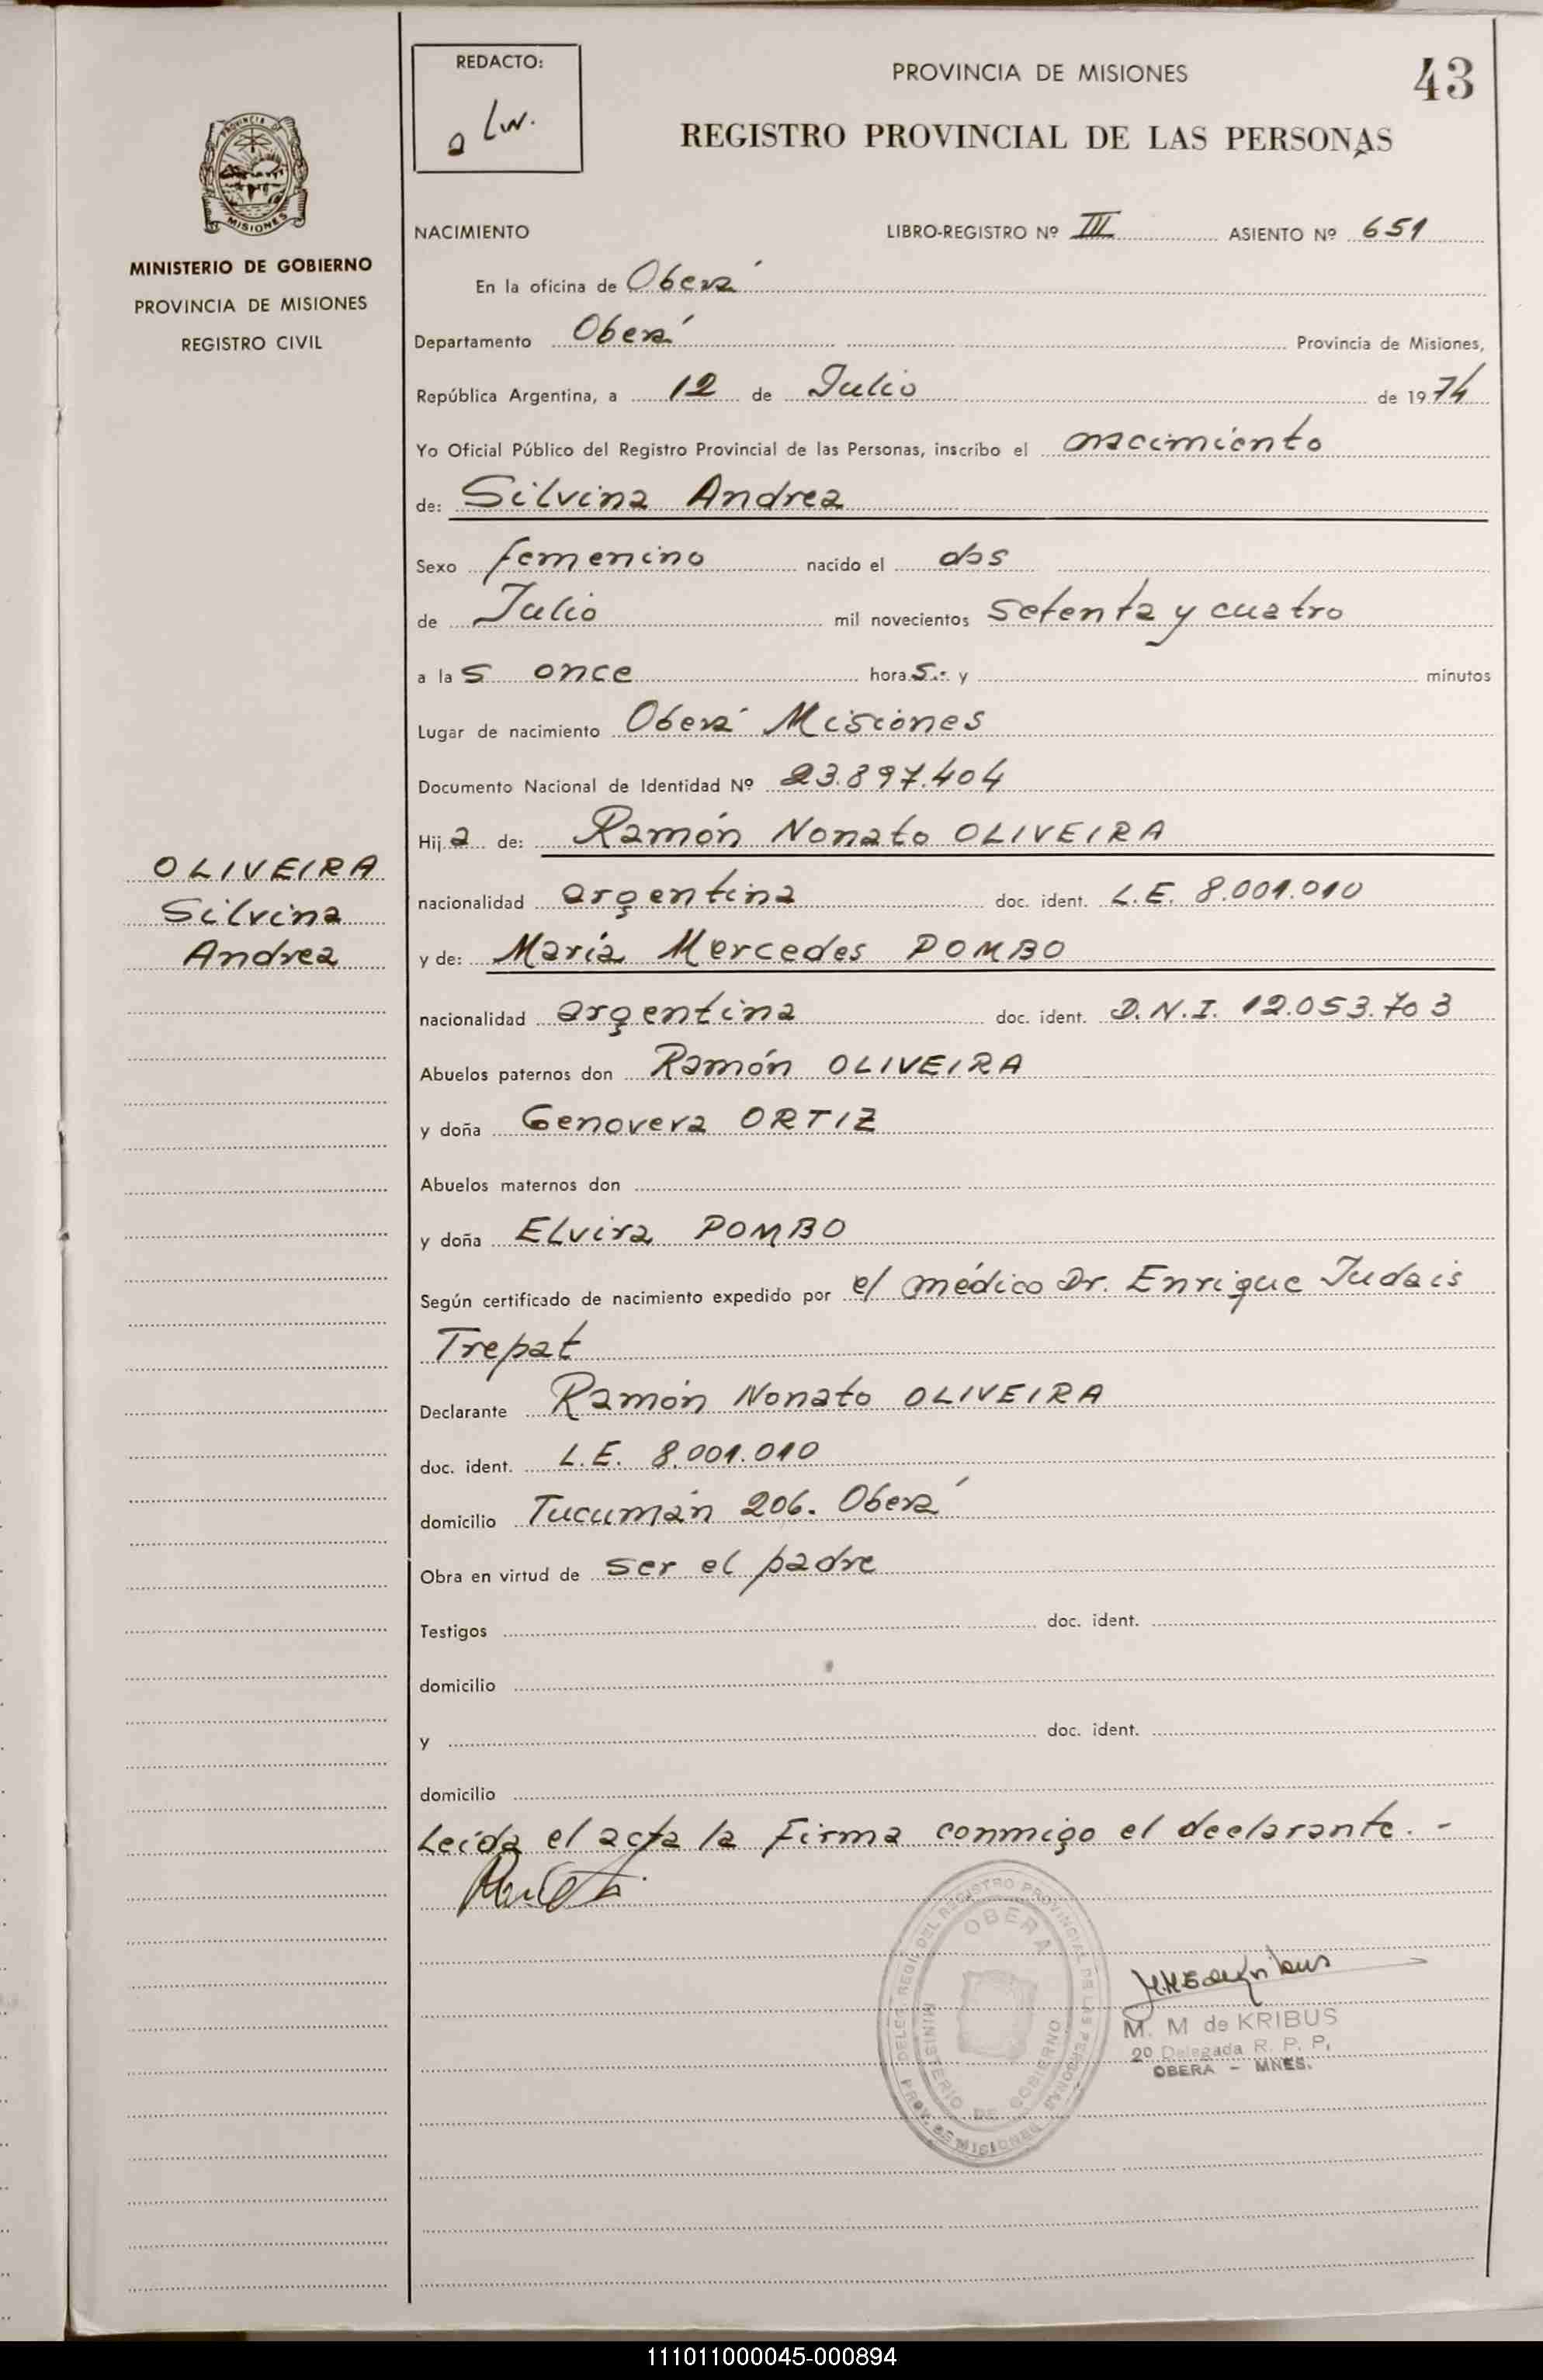 REDACTO:
PROVINCIA DE MISIONES
43
REGISTRO PROVINCIAL DE LAS PERSONAS
PROVINCIA DE
MISIONES
MINISTERIO DE GOBIERNO
PROVINCIA DE MISIONES
REGISTRO CIVIL
NACIMIENTO LIBRO-REGISTRO Nº III ASIENTO Nº 651
En la oficina de Oberá
Departamento Oberá Provincia de Misiones,
República Argentina, a 12 de Julio de 1974
Yo Oficial Público del Registro Provincial de las Personas, inscribo el nacimiento
de: Silvina Andrea
Sexo femenino nacido el dos
de Julio mil novecientos setenta y cuatro
a las once horas.- y minutos
Lugar de nacimiento Oberá Misiones
Documento Nacional de Identidad Nº 23.897.404
Hija de: Ramón Nonato OLIVEIRA
OLIVEIRA
Silvina
Andrea
nacionalidad argentina doc. ident. L.E. 8.001.010
y de: María Mercedes POMBO
nacionalidad argentina doc. ident. D.N.I. 12.053.703
Abuelos paternos don Ramón OLIVEIRA
y doña Genoveva ORTIZ
Abuelos maternos don
y doña Elvira POMBO
Según certificado de nacimiento expedido por el médico Dr. Enrique Judais
Trepat
Declarante Ramón Nonato OLIVEIRA
doc. ident. L.E. 8.001.010
domicilio Tucumán 206. Oberá
Obra en virtud de ser el padre
Testigos doc. ident.
domicilio
y doc. ident.
domicilio
Leída el acta la firma conmigo el declarante.-
OBERA
MINISTERIO DE GOBIERNO
PROV. DE MISIONES
M. M de KRIBUS
2º Delegada R. P. P,
OBERA - MNES.
111011000045-000894